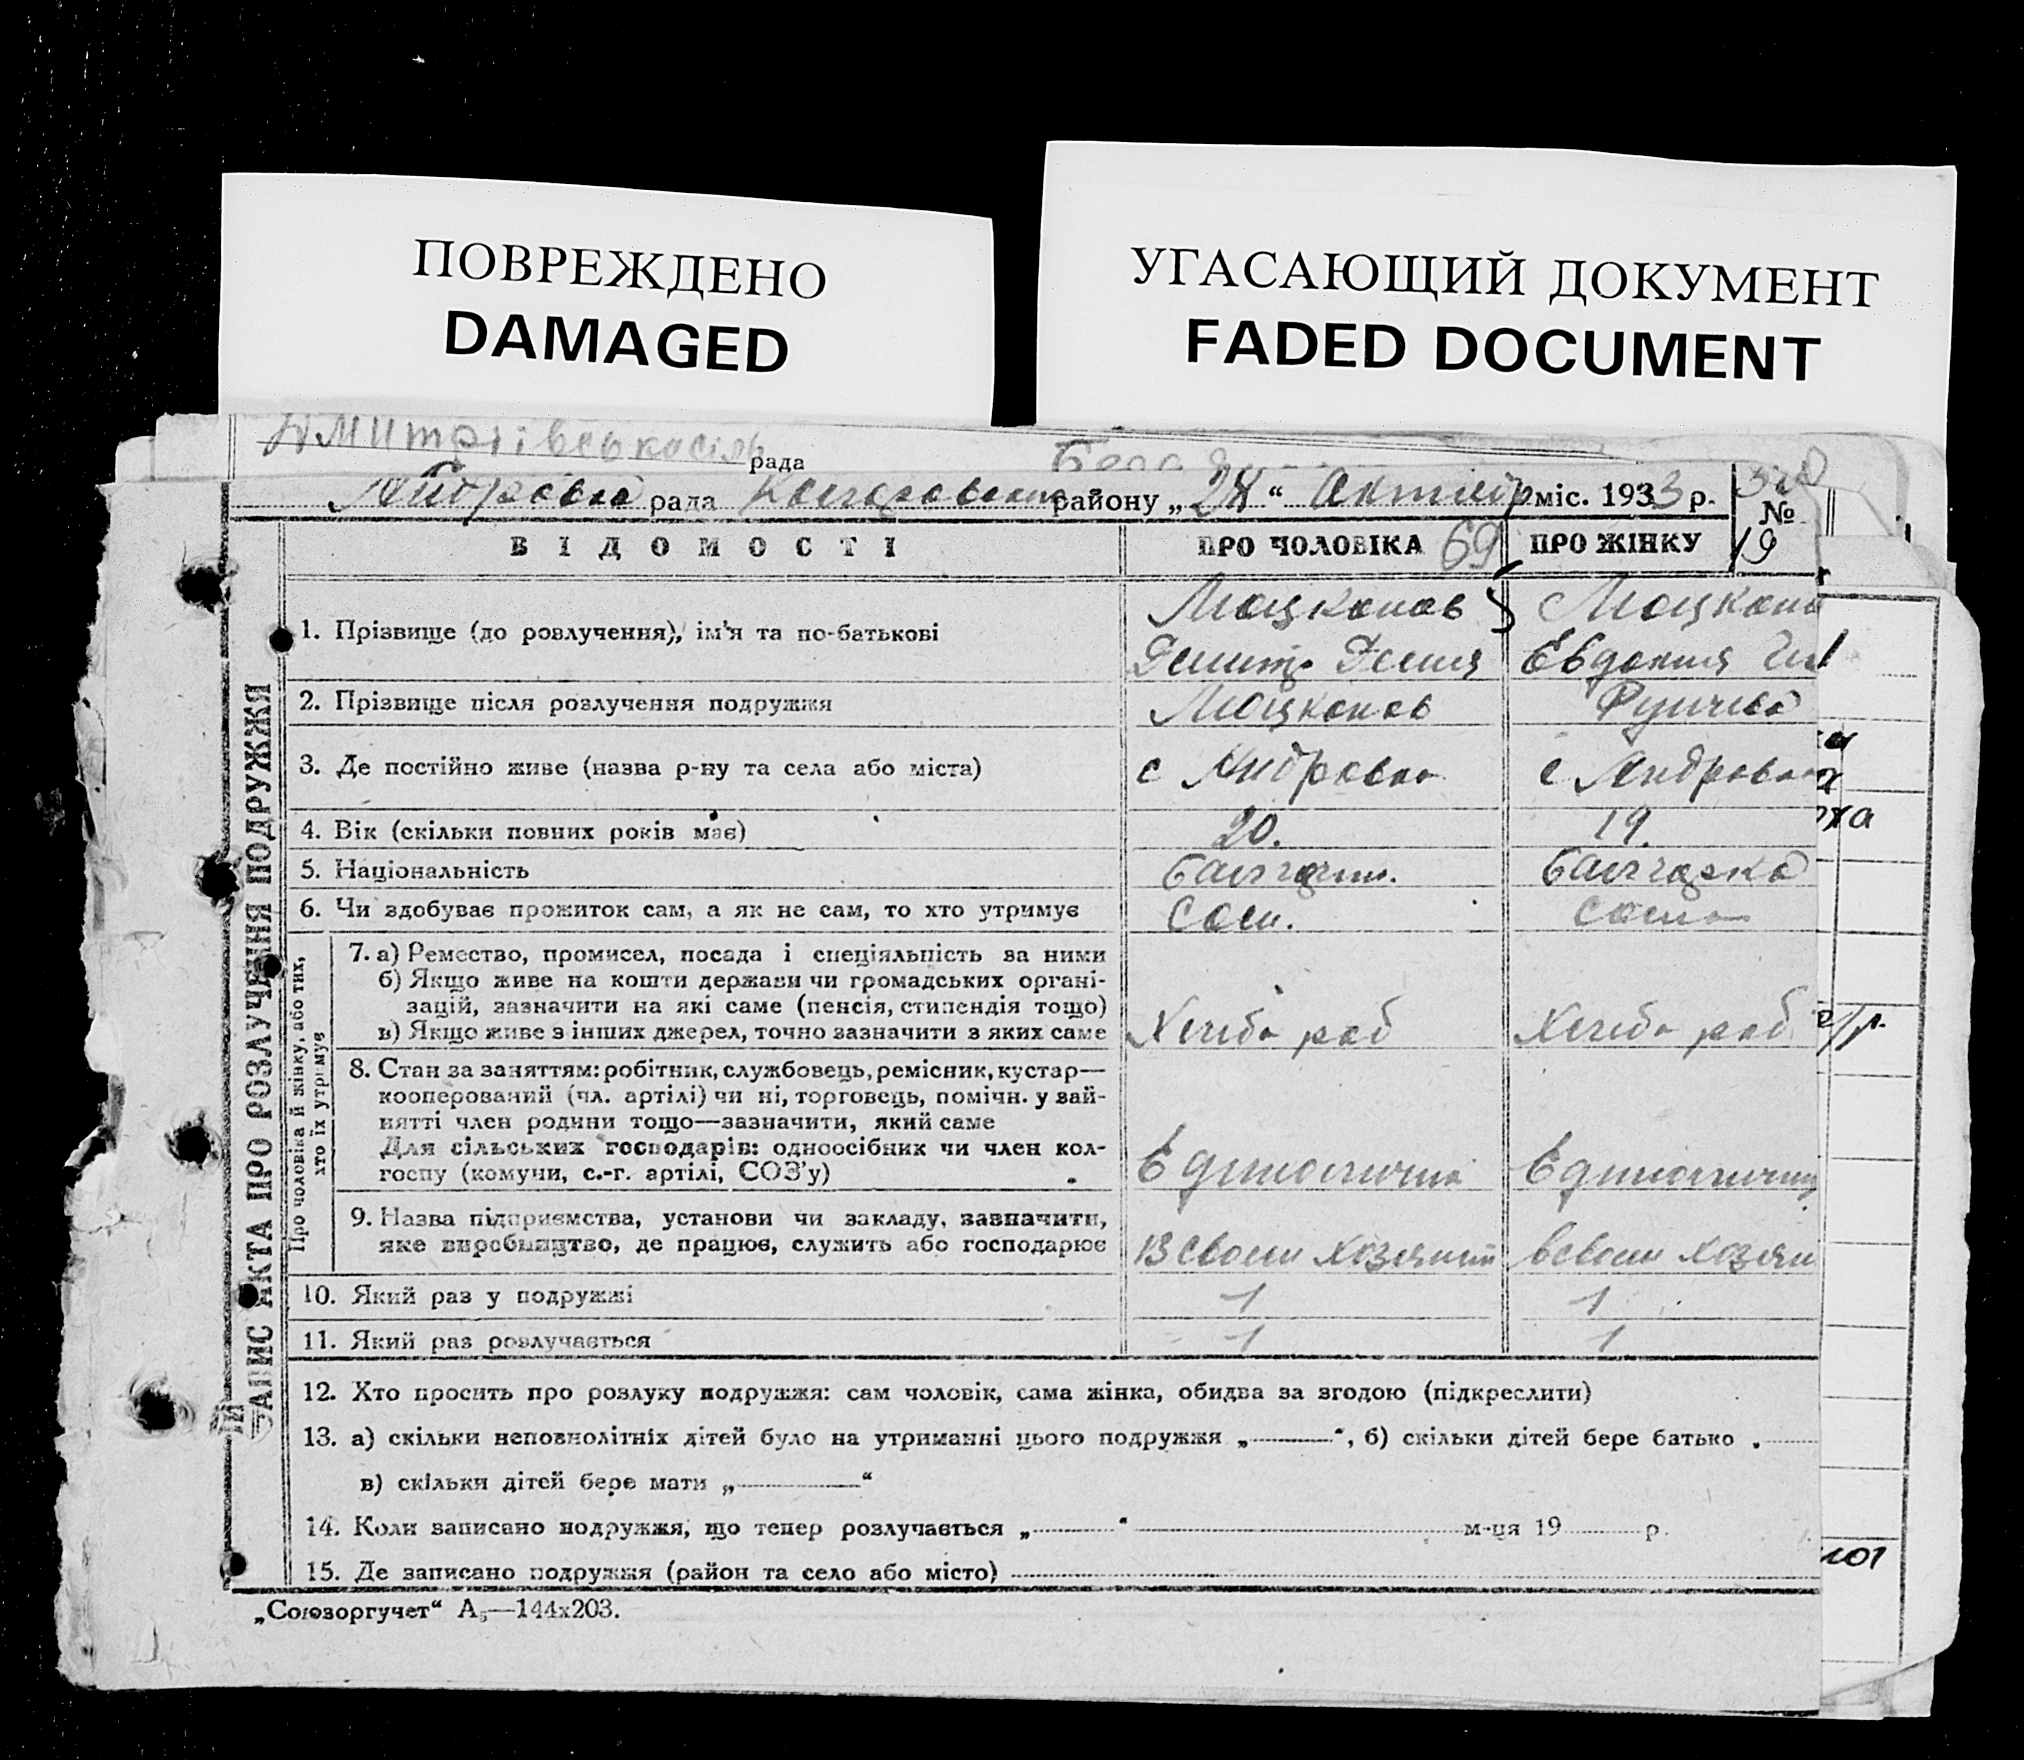 ПОВРЕЖДЕНО
DAMAGED
УГАСАЮЩИЙ ДОКУМЕНТ
FADED DOCUMENT
Дмитріівська сіль рада
рада району „24“ Октябр міс. 1933 р.
№ 19
ВІДОМОСТІ ПРО ЧОЛОВІКА 69 ПРО ЖІНКУ
ЗАПИС АКТА ПРО РОЗЛУЧЕННЯ ПОДРУЖЖЯ
1. Прізвище (до розлучення), ім'я та по-батькові
Мацканов
Евдокия
2. Прізвище після розлучення подружжя Мацканов
3. Де постійно живе (назва р-ну та села або міста) с Андровка с Андровка
4. Вік (скільки повних років має) 20. 19.
5. Національність болгарин. болгарка
6. Чи здобуває прожиток сам, а як не сам, то хто утримує сам. сама
Про чоловіка й жінку, або тих, хто їх утримує
7. а) Ремество, промисел, посада і спеціяльність за ними
б) Якщо живе на кошти держави чи громадських органі-
зацій, зазначити на які саме (пенсія, стипендія тощо)
в) Якщо живе з інших джерел, точно зазначити з яких саме Хлебо роб Хлебо роб
8. Стан за заняттям: робітник, службовець, ремісник, кустар—
кооперований (чл. артілі) чи ні, торговець, помічн. у зай-
нятті член родини тощо—зазначити, який саме
Для сільських господарів: одноосібник чи член кол-
госпу (комуни, с.-г. артілі, СОЗ'у) Единоличник Единолични
9. Назва підприємства, установи чи закладу, зазначити,
яке виробництво, де працює, служить або господарює В своем хозяйст в своем хозяй
10. Який раз у подружжі 1 1
11. Який раз розлучається 1 1
12. Хто просить про розлуку подружжя: сам чоловік, сама жінка, обидва за згодою (підкреслити)
13. а) скільки неповнолітніх дітей було на утриманні цього подружжя „ “, б) скільки дітей бере батько „
в) скільки дітей бере мати „ “
14. Коли записано подружжя, що тепер розлучається „ “ м-ця 19 р.
15. Де записано подружжя (район та село або місто)
„Союзоргучет“ А₅—144х203.